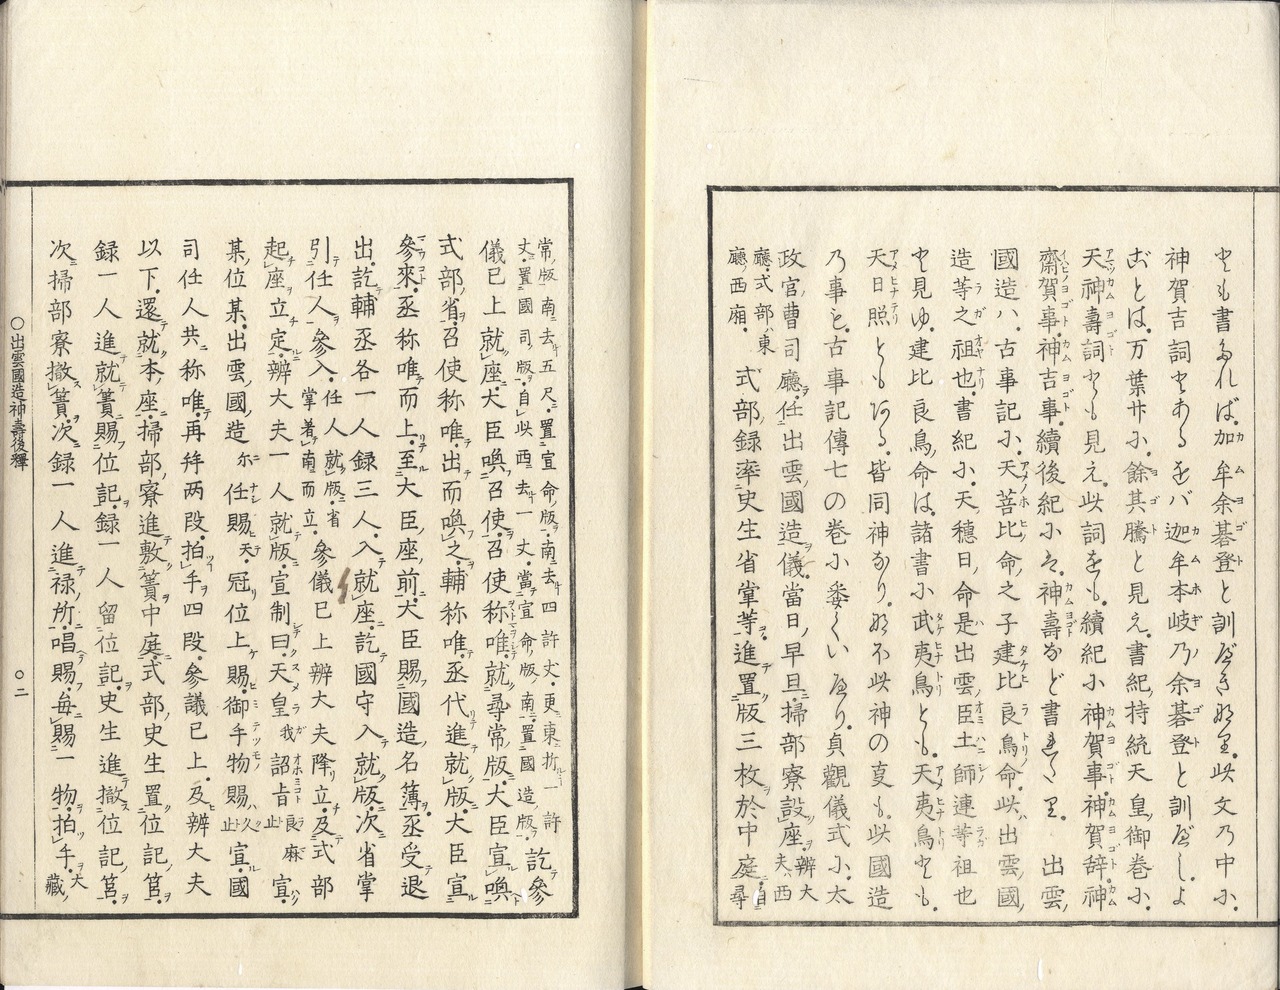 とも書たれば､加牟余碁登と訓べき也､此文乃中に､
神賀吉詞とあるをバ迦牟本岐乃余碁登と訓べし､よ
ごとは､万葉廿に､餘其騰と見え､書紀､持統天皇ノ御巻に､
天神壽詞とも見え､此詞をも､續紀に神賀事､神賀辞､神
齋賀事､神吉事､續後紀に云､神壽など書きたり､出雲ノ
國造ハ､古事記に､天菩比ノ命之子建比良鳥ノ命､此ハ出雲ノ國ノ
造等之祖也､書紀に､天穂日ノ命是出雲ノ臣土師ノ連等祖也
と見ゆ､建比良鳥ノ命は､諸書に武夷鳥とも､天夷鳥とも､
天日照ともある､皆同神なり､
乃事も､古事記傳七の巻に委くいへり､貞觀儀式に､太
政官ノ曹司ノ廳ニ任出雲ノ國造儀､當日ノ早旦､掃部寮設座ヲ､辨大夫ハ西
廳､式部ハ東廳ノ西廂､式部ノ録率史生省掌等ヲ進置版三枚於中庭ニ､自尋
常ノ版南去五尺ニ置宣命ノ版ヲ､南去四許丈､更東折一許
丈ニ置國司ノ版､自此西去一丈､當宣命版ノ南ニ置國造ノ版､訖參
儀已上就座､大臣喚召使､召使稱唯､就尋常ノ版ニ､大臣宣喚
式部ノ省ヲ､召使称唯､出而喚之､輔称唯､丞代進就版､大臣宣
參來､丞称唯而上､至大臣ノ座ノ前ニ､大臣賜國造ノ名簿ヲ､丞受退
出､訖輔丞各一人録三人､入就座ニ､訖國守入就版､次ニ省掌
引任人ヲ參入､任人就版､省掌著南而立､參儀已上辨大夫降立､及式部
起座立定､辨大夫一人就版､宣制曰､天皇我詔旨良麻止宣
某ノ位某ヲ出雲ノ國造尓任賜天､冠位上賜､御手物賜久止宣､國
司任人共称唯､再拜两段､拍手四段､參議已上､及辨大夫
以下､還就本ノ座､掃部寮進敷簀ヲ中庭ニ､式部ノ史生置位記ノ筥ヲ､
録一人進就簀､賜位記､録一人留位記､史生進撤位記ノ筥､
次ニ掃部寮撤簀ヲ､次ニ録一人進禄ノ所､唱賜､毎賜一物､拍手､大藏ノ
○出雲國造神壽後釋
○二